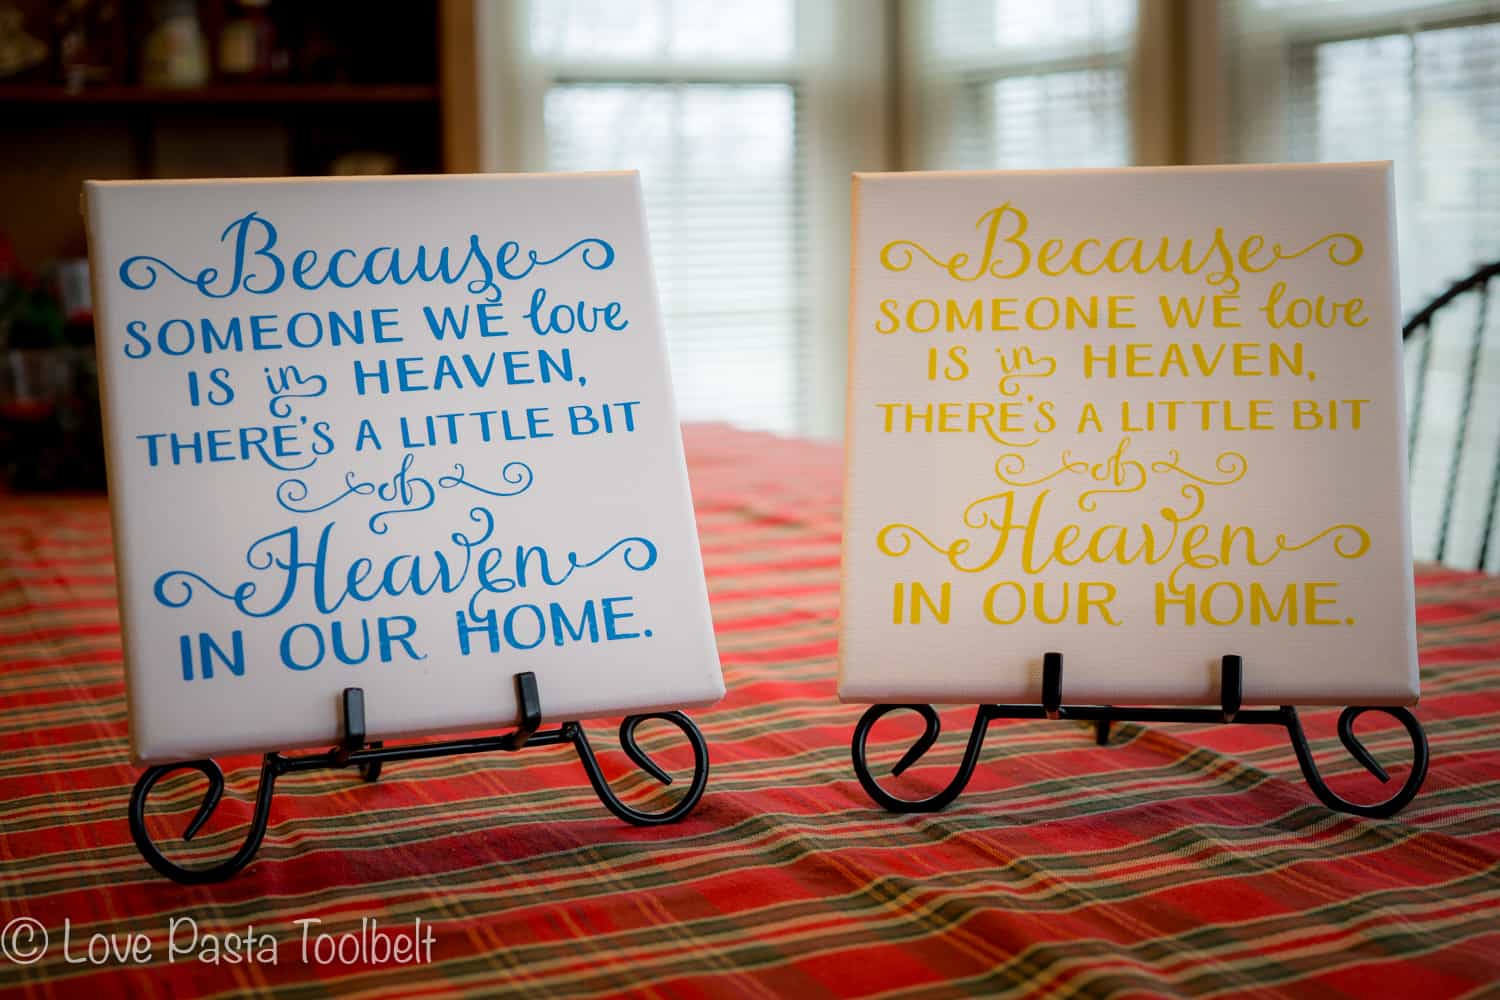 Because
SOMEONE WE love
IS in HEAVEN,
THERE'S A LITTLE BIT
of
Heaven
IN OUR HOME.
Because
SOMEONE WE love
IS in HEAVEN,
THERE'S A LITTLE BIT
of
Heaven
IN OUR HOME.
© Love Pasta Toolbelt